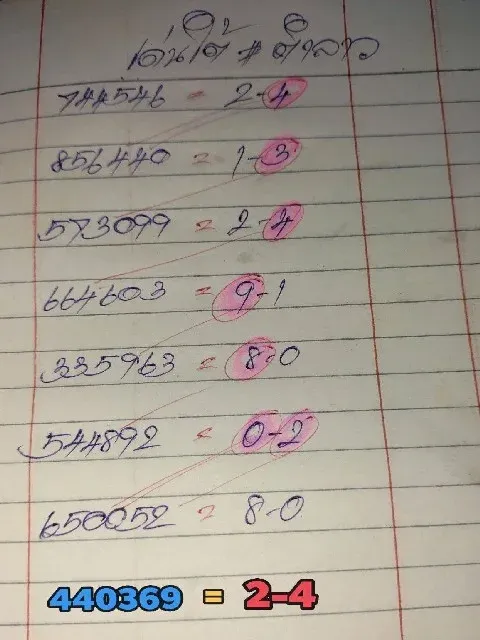 เด่นใต้ # ถ้ำลาว
744546 = 2-4
856440 = 1-3
573099 = 2-4
664603 = 9-1
335963 = 8-0
544892 = 0-2
650052 = 8-0
440369 = 2-4